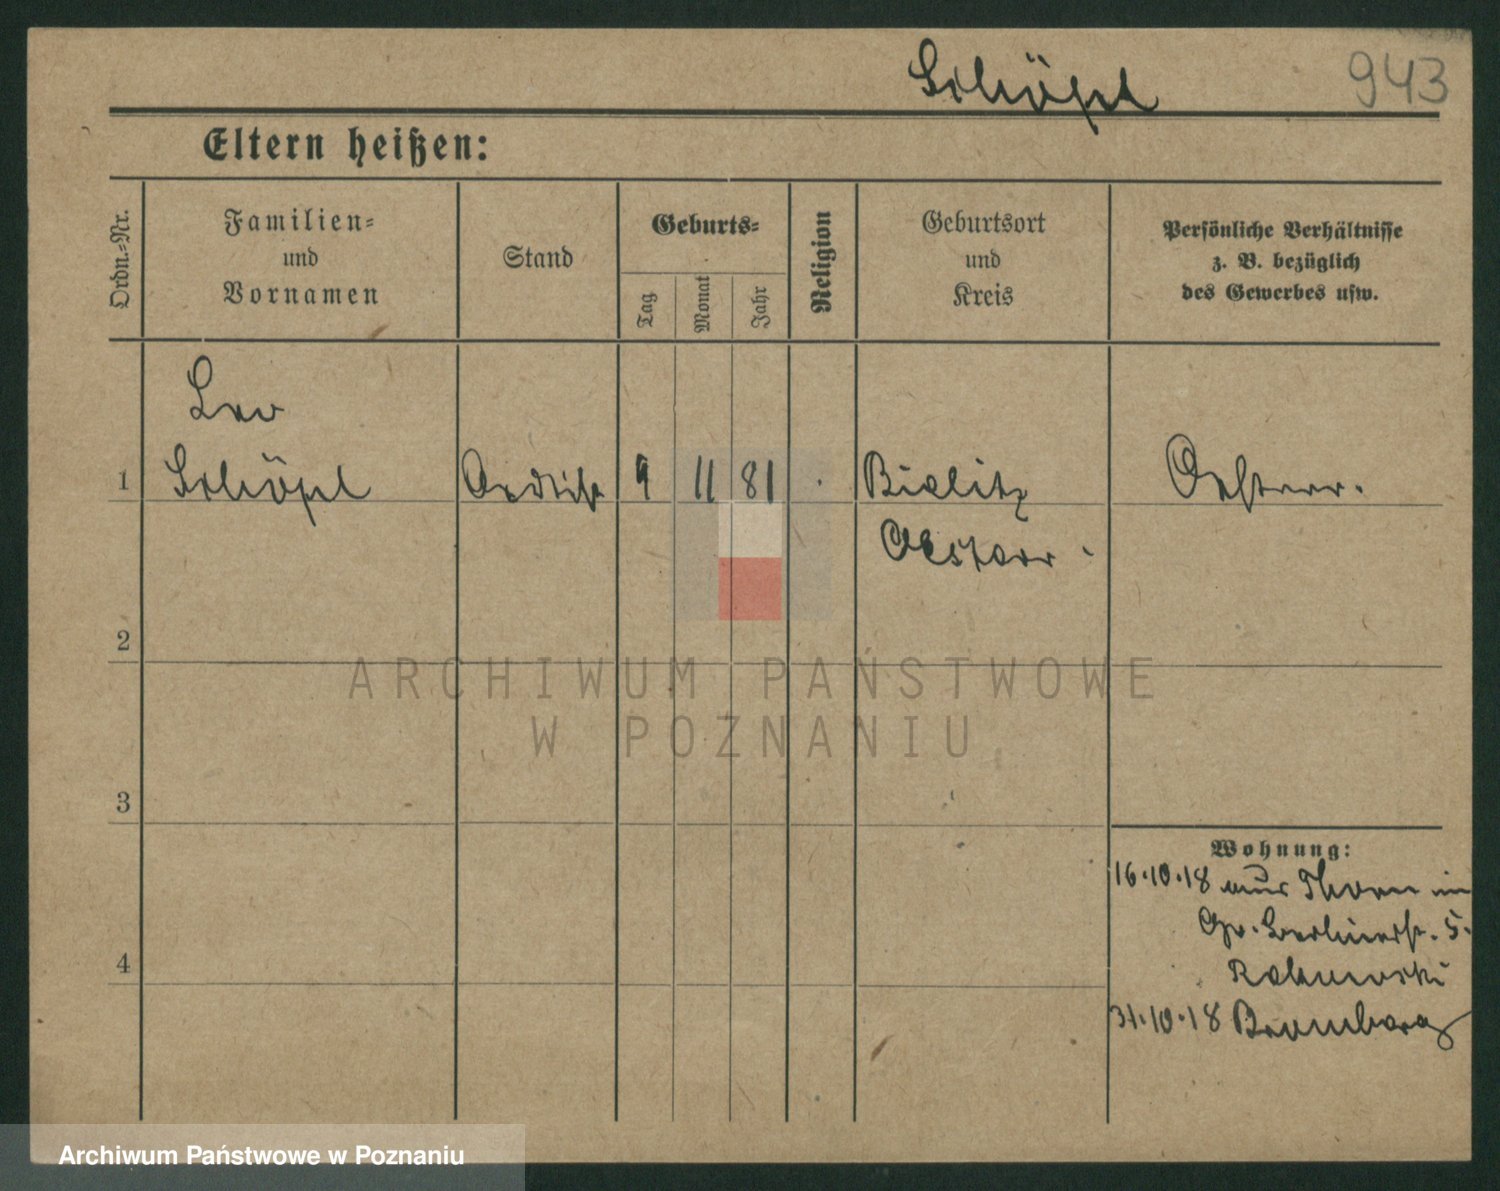 Schöpl 943
Eltern heißen:
Ordn.-Nr.
Familien-
und
Vornamen
Stand
Geburts-
Tag
Monat
Jahr
Religion
Geburtsort
und
Kreis
Persönliche Verhältnisse
z. B. bezüglich
des Gewerbes usw.
Leo
1 Schöpl Artist 9 11 81 Bielitz Oesterr.
Oesterr.
2
3
4
Wohnung:
16.10.18 aus Thorn in
Gr. Berlinerstr. 5.
31.10.18 Bromberg
ARCHIWUM PAŃSTWOWE
W POZNANIU
Archiwum Państwowe w Poznaniu